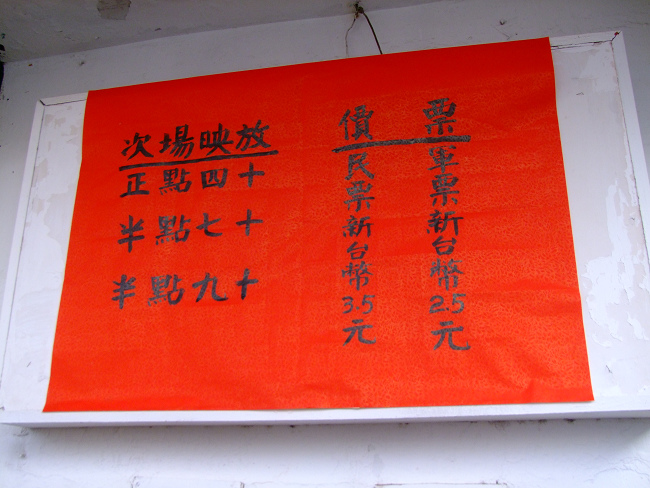 票價
軍票新台幣2.5元
民票新台幣3.5元
放映場次
十四點正
十七點半
十九點半